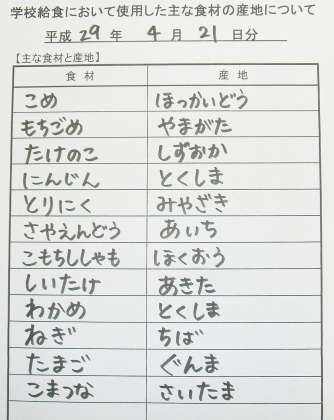 学校給食において使用した主な食材の産地について
平成 29 年 4 月 21 日分
【主な食材と産地】
食材 産地
こめ ほっかいどう
もちごめ やまがた
たけのこ しずおか
にんじん とくしま
とりにく みやざき
さやえんどう あいち
こもちししゃも ほくおう
しいたけ あきた
わかめ とくしま
ねぎ ちば
たまご ぐんま
こまつな さいたま